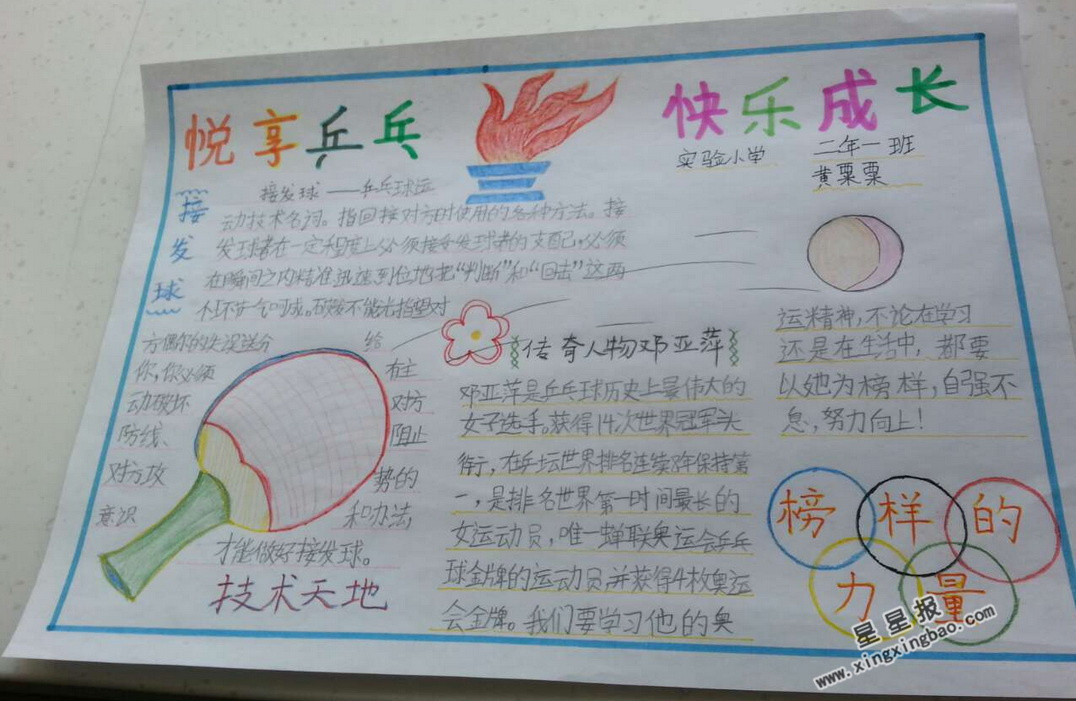 悦享乒乓
快乐成长
实验小学
二年一班
黄粟粟
接发球
接发球——乒乓球运
动技术名词。指回接对方时使用的各种方法。接
发球者在一定程度上必须接受发球者的支配,必须
在瞬间之内精准迅速到位地把“判断”和“回击”这两
个环节一气呵成。不能光指望对
方偶尔的失误送分 给
你,你必须 在主
动破坏 对方
防线、 阻止
对方攻 势的
意识 和办法,
才能做好接发球。
技术天地
传奇人物邓亚萍
邓亚萍是乒乓球历史上最伟大的
女子选手。获得14次世界冠军头
衔,在乒坛世界排名连续8年保持第
一,是排名世界第一时间最长的
女运动员,唯一蝉联奥运会乒乓
球金牌的运动员并获得4枚奥运
会金牌。我们要学习他的奥
运精神,不论在学习
还是在生活中,都要
以她为榜样,自强不
息,努力向上!
榜样的
力量
星星报
www.xingxingbao.com